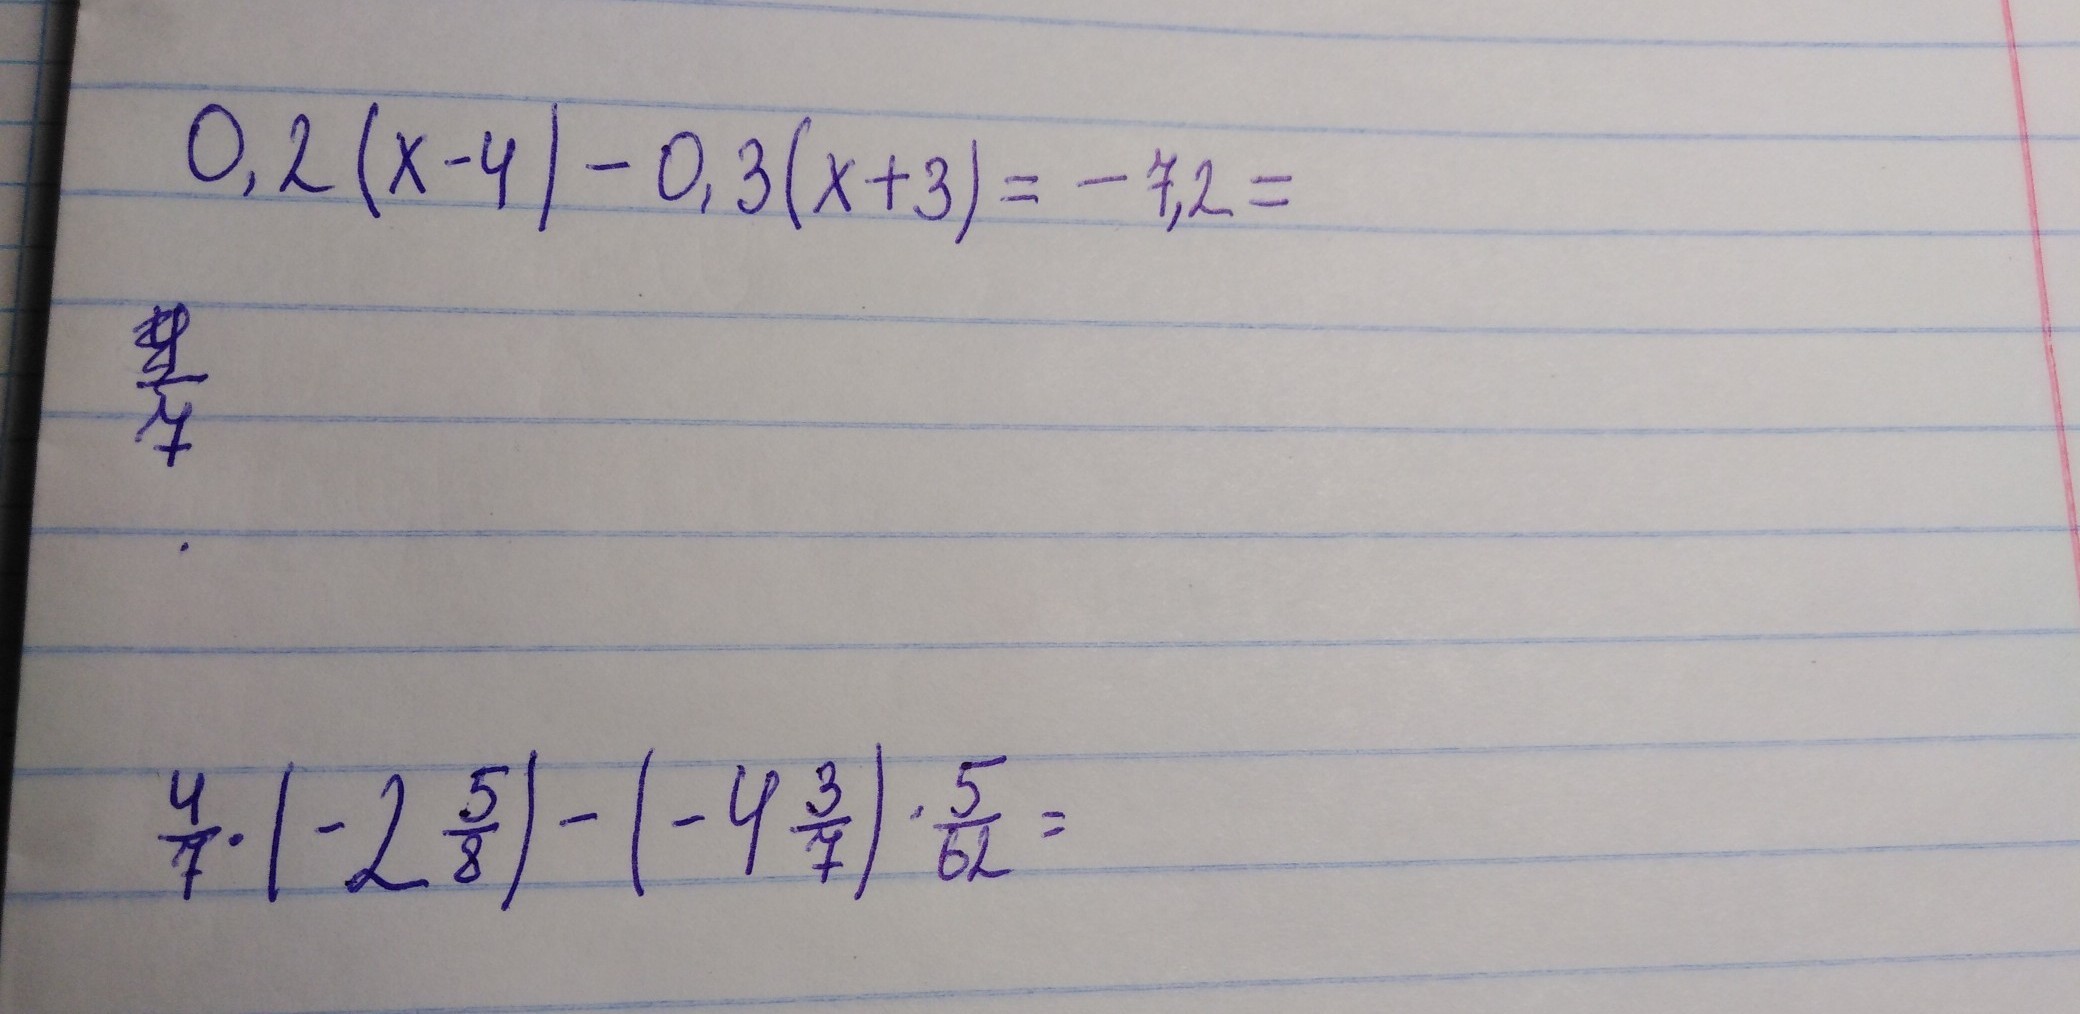 0,2(x-4)-0,3(x+3)=-7,2=
7
4/7·(-2 5/8)-(-4 3/7)·5/62=